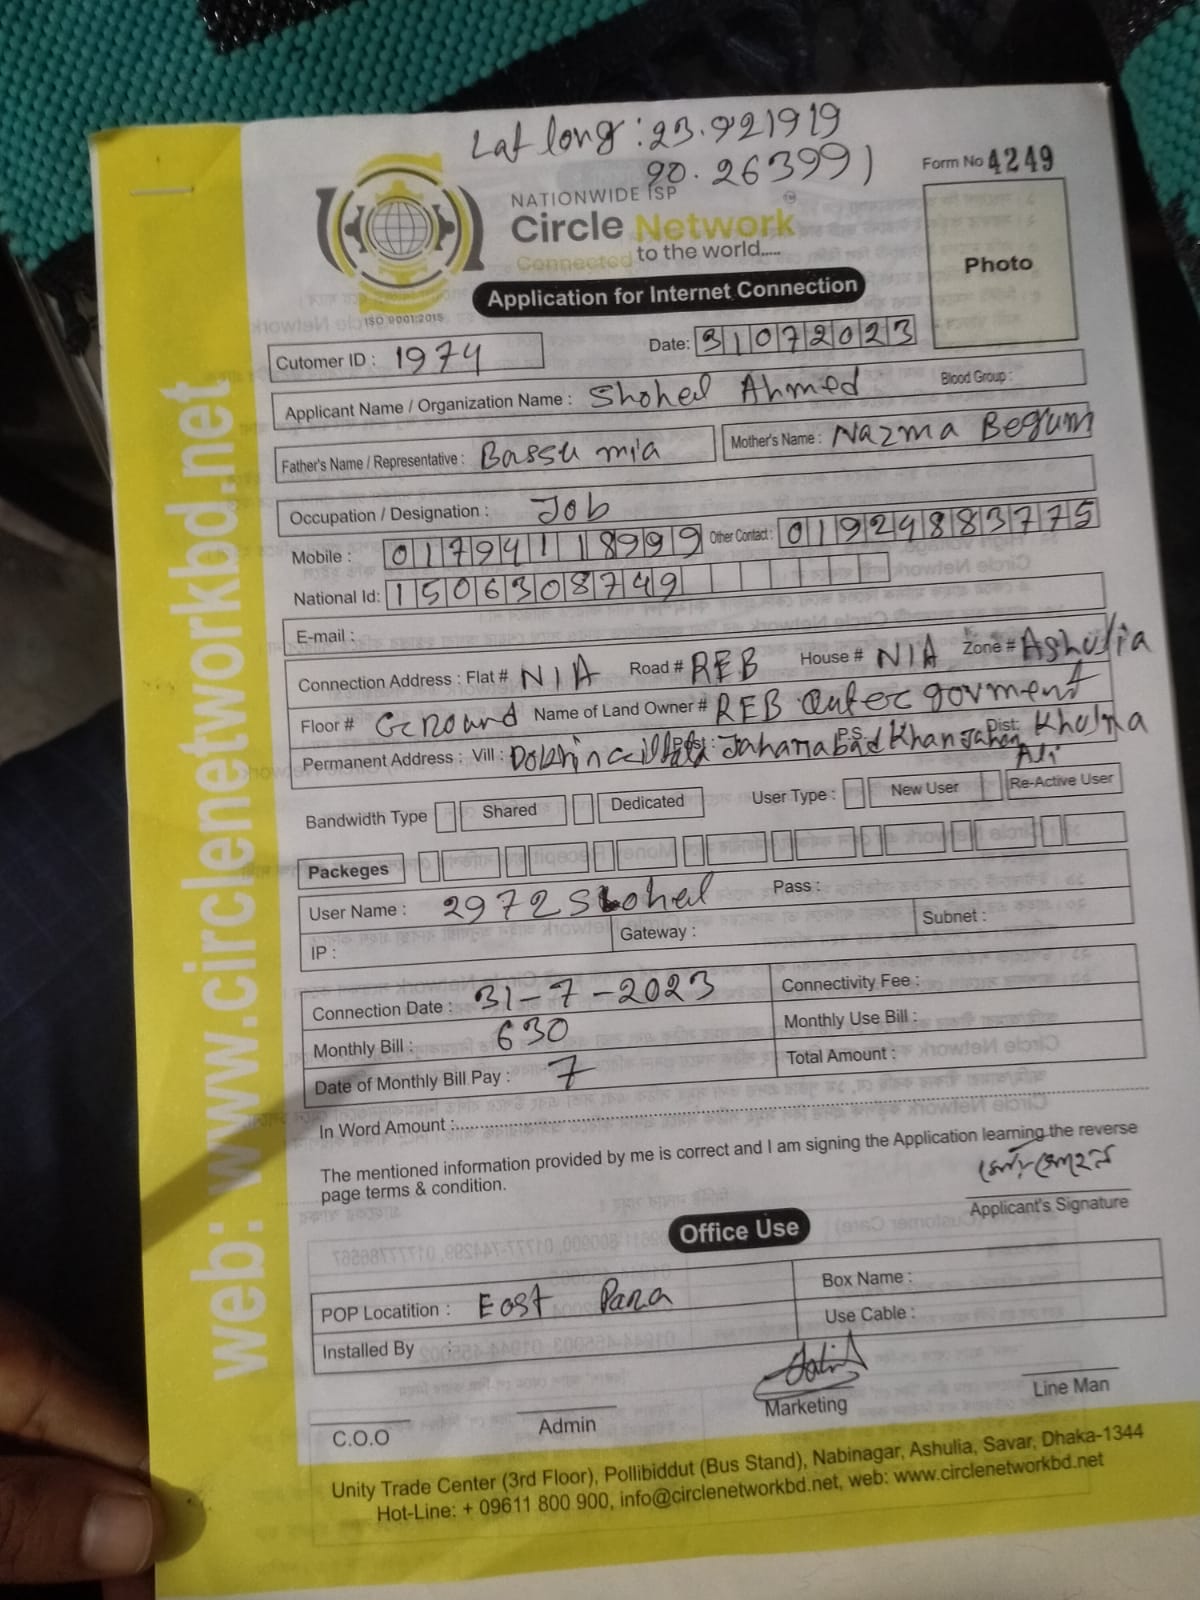 Lat long: 23.921919
90.263991
Form No 4249
NATIONWIDE ISP
Circle Network
Connected to the world.....
ISO 9001:2015
Photo
Application for Internet Connection
Cutomer ID : 1974
Date: 31072023
Applicant Name / Organization Name : Shohel Ahmed Blood Group :
Father's Name / Representative : Bassu mia Mother's Name : Nazma Begum
Occupation / Designation : Job
Mobile : 01794118999 Other Contact : 01924883775
National Id: 1506308749
E-mail :
Connection Address : Flat # N/A Road # REB House # N/A Zone # Ashulia
Floor # Ground Name of Land Owner # REB Quter govment
Permanent Address : Vill : Post : Jahanabad P.S. Khan Jahan Ali Dist: Khulna
Bandwidth Type Shared Dedicated User Type : New User Re-Active User
Packeges
User Name : 2972Shohel Pass :
IP : Gateway : Subnet :
Connection Date : 31-7-2023 Connectivity Fee :
Monthly Bill : 630 Monthly Use Bill :
Date of Monthly Bill Pay : 7 Total Amount :
In Word Amount :
The mentioned information provided by me is correct and I am signing the Application learning the reverse
page terms & condition.
মোঃ সোহেল
Applicant's Signature
Office Use
POP Locatition : East Para Box Name :
Installed By : Use Cable :
C.O.O Admin Marketing Line Man
Unity Trade Center (3rd Floor), Pollibiddut (Bus Stand), Nabinagar, Ashulia, Savar, Dhaka-1344
Hot-Line: + 09611 800 900, info@circlenetworkbd.net, web: www.circlenetworkbd.net
web: www.circlenetworkbd.net